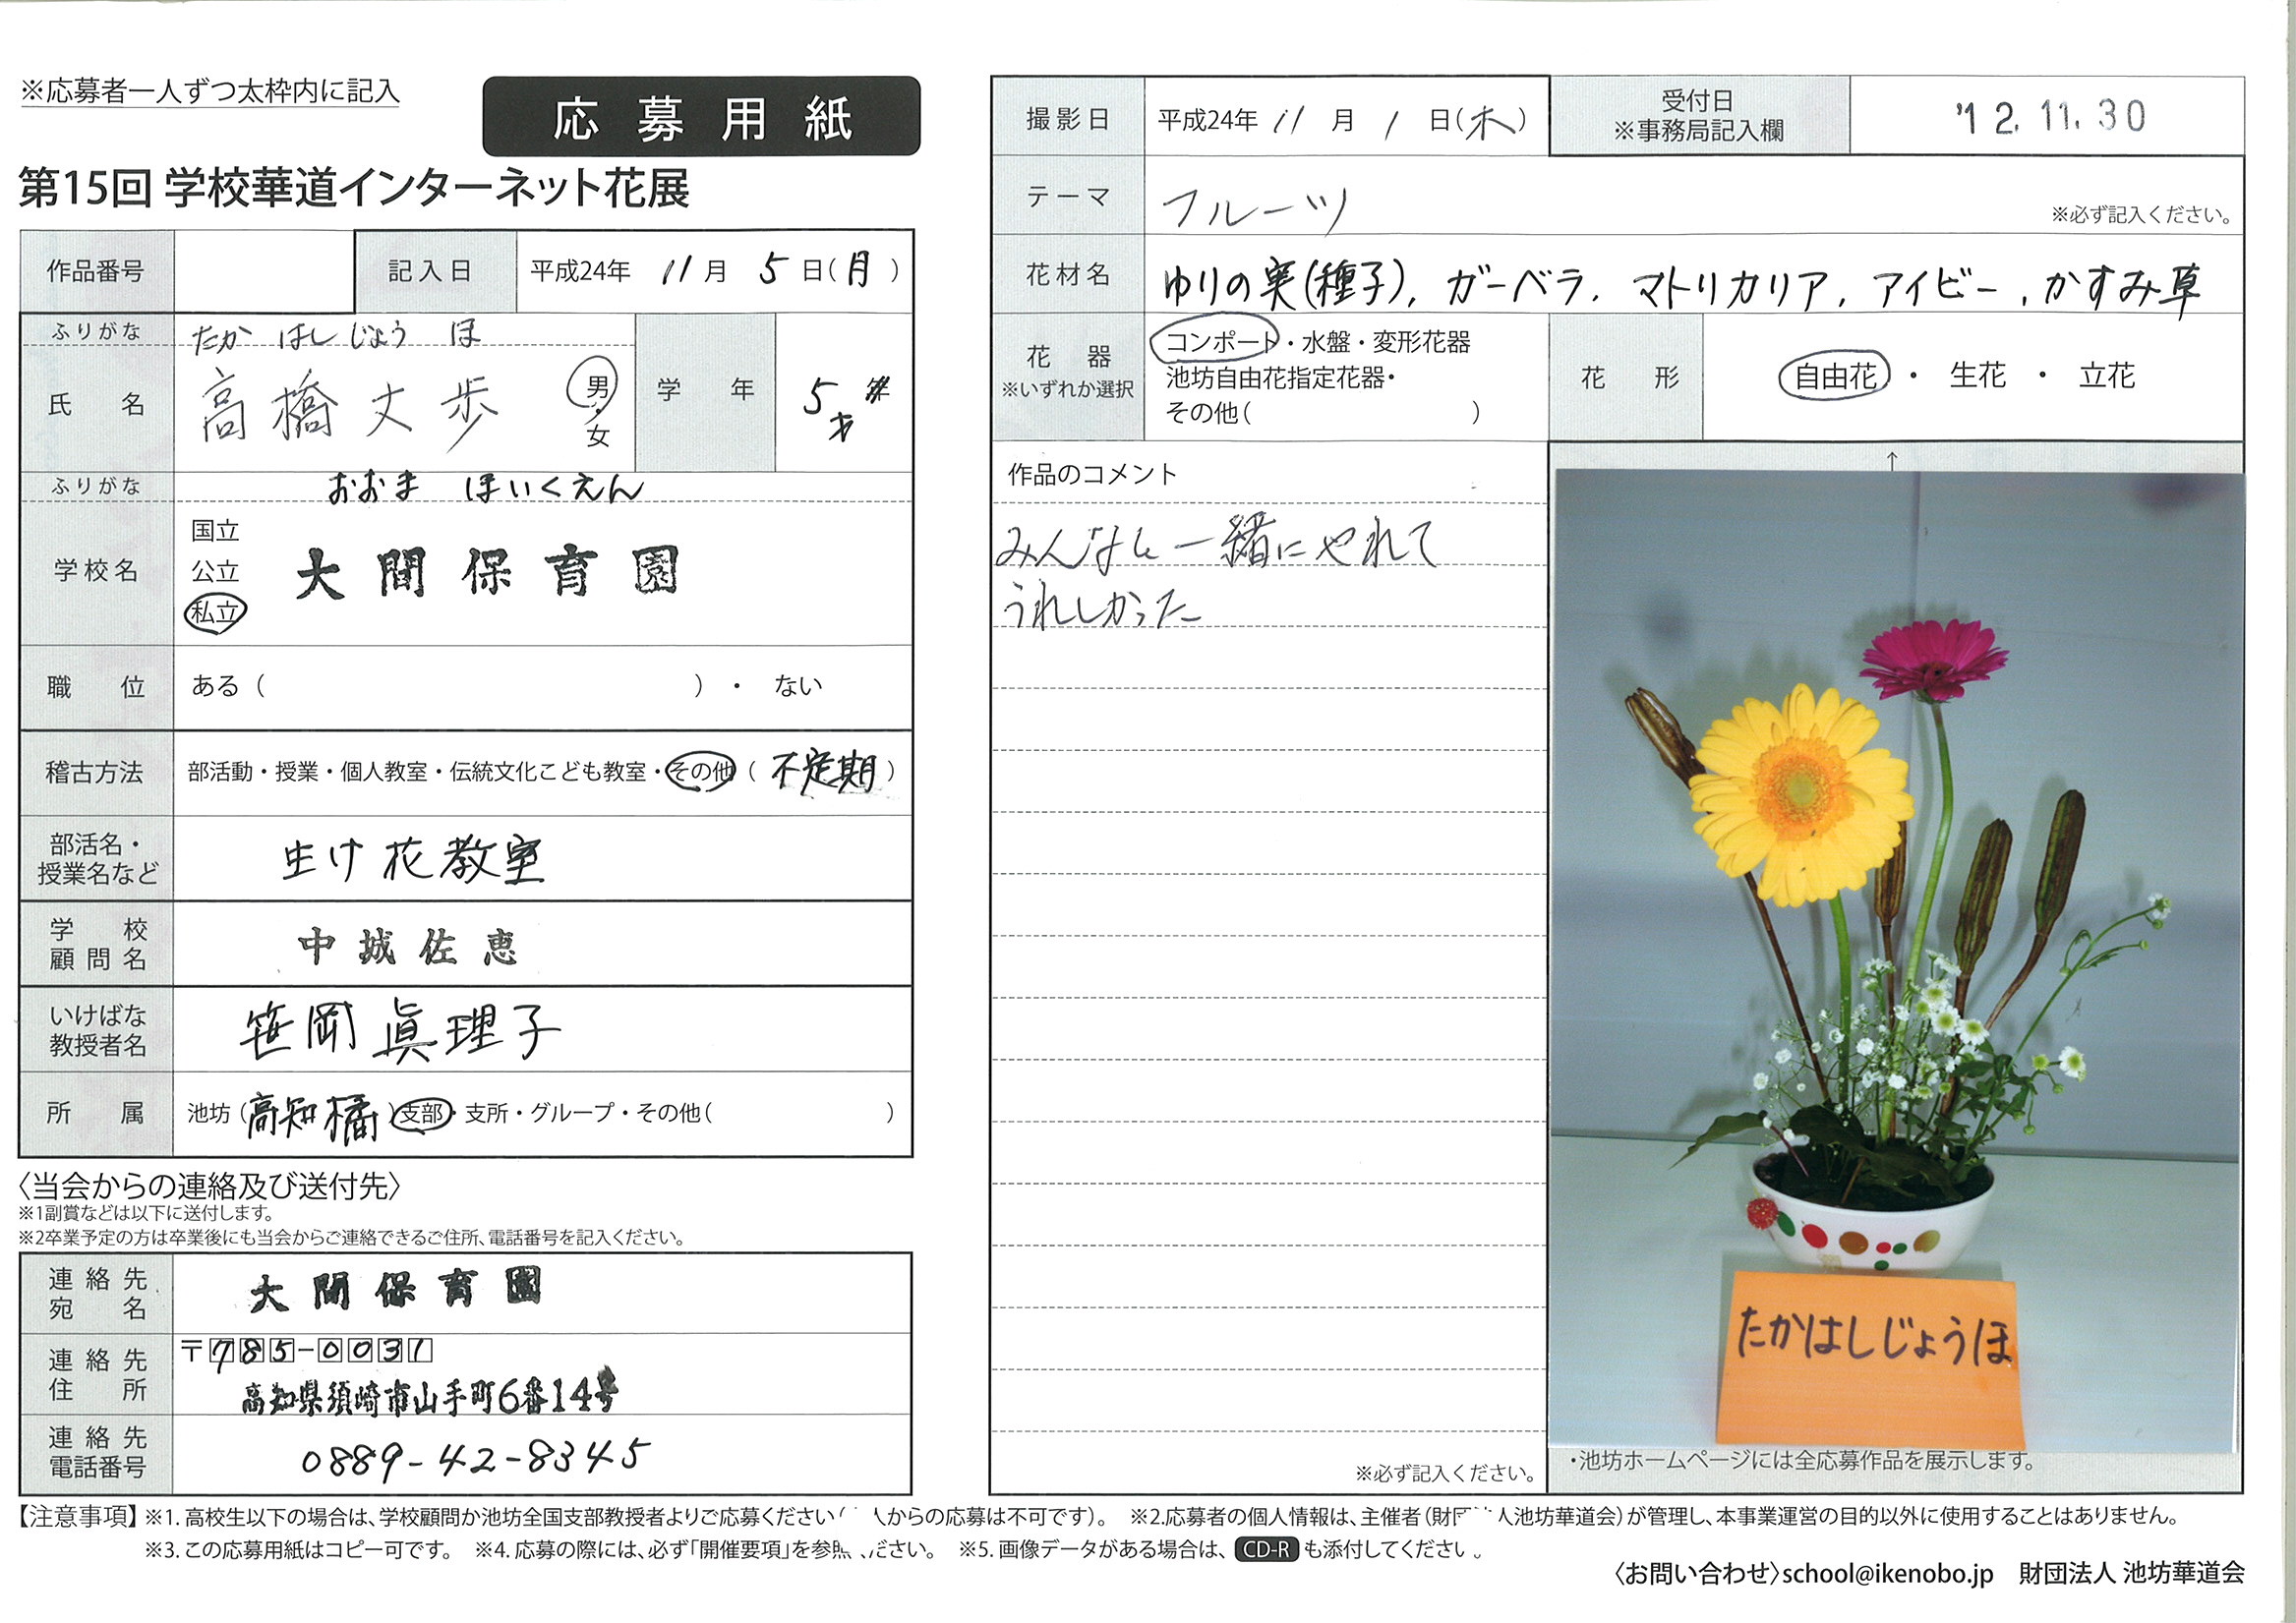 ※応募者一人ずつ太枠内に記入
応募用紙
第15回 学校華道インターネット花展
作品番号
記入日 平成24年 11月 5日(月)
ふりがな たか はし じょう ほ
氏名 高橋丈歩 男・女
学年 5才
ふりがな おおま ほいくえん
学校名 国立 公立 私立 大間保育園
職位 ある( )・ ない
稽古方法 部活動・授業・個人教室・伝統文化こども教室・その他(不定期)
部活名・授業名など 生け花教室
学校顧問名 中城佐恵
いけばな教授者名 笹岡眞理子
所属 池坊(高知橘)支部・支所・グループ・その他( )
〈当会からの連絡及び送付先〉
※1副賞などは以下に送付します。
※2卒業予定の方は卒業後にも当会からご連絡できるご住所、電話番号を記入ください。
連絡先宛名 大間保育園
連絡先住所 〒785-0031
高知県須崎市山手町6番14号
連絡先電話番号 0889-42-8345
撮影日 平成24年 11月 1日(木)
受付日 ※事務局記入欄 '12.11.30
テーマ フルーツ ※必ず記入ください。
花材名 ゆりの実(種子), ガーベラ, マトリカリア, アイビー, かすみ草
花器 ※いずれか選択 コンポート・水盤・変形花器
池坊自由花指定花器・
その他( )
花形 自由花 ・ 生花 ・ 立花
作品のコメント
みんなと一緒にやれて
うれしかった
※必ず記入ください。
↑
たかはしじょうほ
・池坊ホームページには全応募作品を展示します。
【注意事項】※1. 高校生以下の場合は、学校顧問か池坊全国支部教授者よりご応募ください( 人からの応募は不可です)。 ※2.応募者の個人情報は、主催者(財団 人池坊華道会)が管理し、本事業運営の目的以外に使用することはありません。
※3. この応募用紙はコピー可です。 ※4. 応募の際には、必ず「開催要項」を参照 ださい。 ※5. 画像データがある場合は、CD-Rも添付してください。
〈お問い合わせ〉school@ikenobo.jp 財団法人 池坊華道会